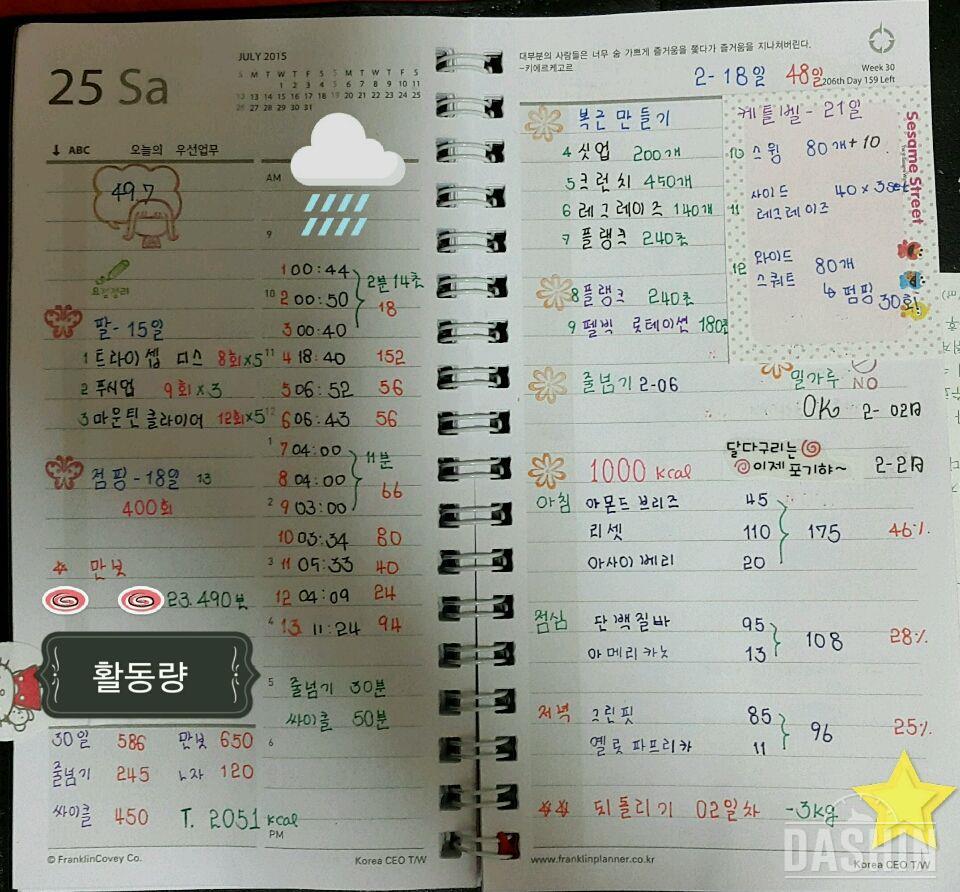 25 Sa
JULY 2015
S M T W T F S
1 2 3 4
5 6 7 8 9 10 11
12 13 14 15 16 17 18
19 20 21 22 23 24 25
26 27 28 29 30 31
↓ ABC 오늘의 우선업무
49.7
요점정리
팔-15일
1 트라이셉 딥스 8회×5
2 푸시업 9회×3
3 마운틴 클라이머 12회×5
점핑-18일 13
400회
만보
23.490보
활동량
30일 586 만보 650
줄넘기 245 120
싸이클 450 T. 2051 kcal
© FranklinCovey Co.
AM
9
1 00:44
10 2 00:50 2분14초
3 00:40 18
11 4 18:40 152
5 06:52 56
12 6 06:43 56
1 7 04:00 11분
8 04:00 66
2 9 03:00
10 03:34 80
3 11 05:33 40
12 04:09 24
4 13 11:24 94
5 줄넘기 30분
싸이클 50분
6
PM
Korea CEO T/W
대부분의 사람들은 너무 숨 가쁘게 즐거움을 쫓다가 즐거움을 지나쳐버린다.
-키에르케고르
Week 30
2-18일 48일 206th Day 159 Left
복근 만들기
4 싯업 200개
5 크런치 450개
6 레그레이즈 140개
7 플랭크 240초
8 플랭크 240초
9 펠빅 로테이션 180초
케틀벨-21일
10 스윙 80개+10
11 사이드 40×3set
레그레이즈
12 와이드
스쿼트 80개
↳ 펌핑
30회
Sesame Street
줄넘기 2-06
밀가루 NO
OK 2-02日
1000 kcal
달다구리는
이제 포기야~ 2-2日
아침 아몬드 브리즈 45
리셋 110 175 46%
아사이베리 20
점심 단백질바 95
아메리카노 13 108 28%
저녁 그린핏 85
옐로파프리카 11 96 25%
되돌리기 02일차 -3kg
www.franklinplanner.co.kr
Korea CEO T/W
DASHIN